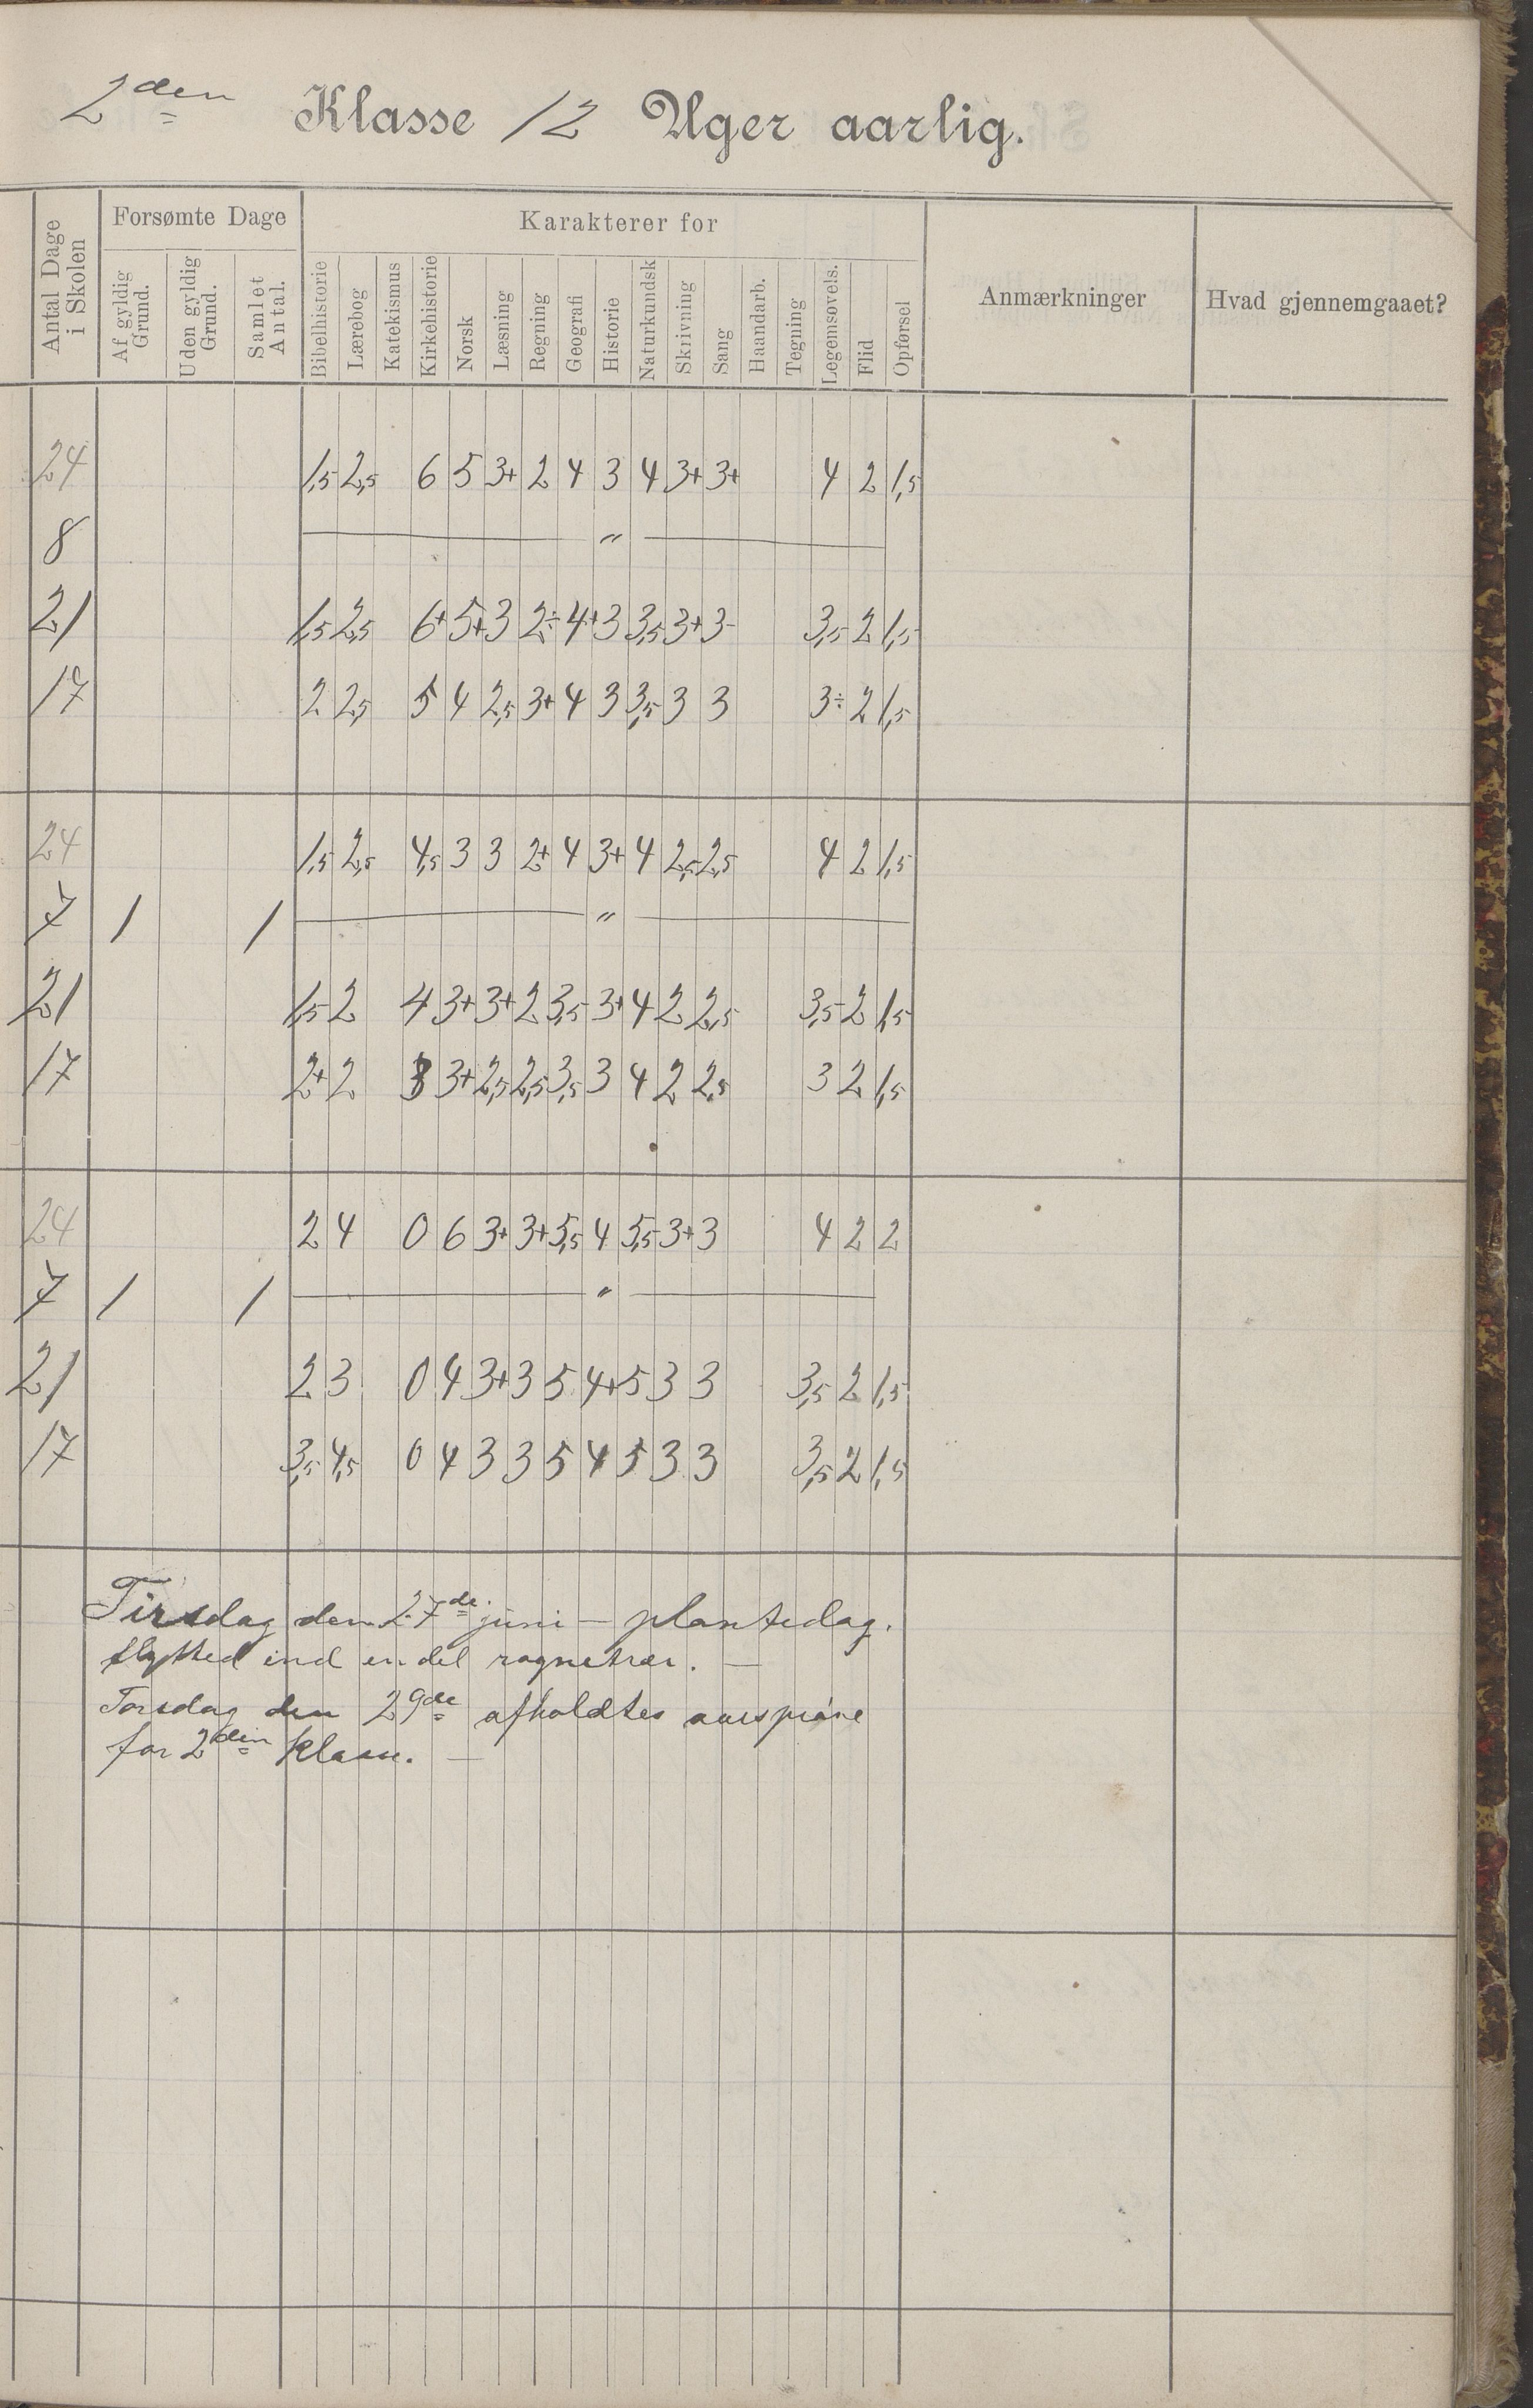 2den Klasse 12 Uger aarlig.
Antal Dage i Skolen
Forsømte Dage
Af gyldig Grund.
Uden gyldig Grund.
Samlet Antal.
Karakterer for
Bibelhistorie
Lærebog
Katekismus
Kirkehistorie
Norsk
Læsning
Regning
Geografi
Historie
Naturkundsk
Skrivning
Sang
Haandarb.
Tegning
Legemsøvels.
Flid
Opførsel
Anmærkninger
Hvad gjennemgaaet?
24 1,5 2,5 6 5 3+ 2 4 3 4 3+ 3+ 4 2 1,5
8 — " —
21 1,5 2,5 6+ 5+ 3 2÷ 4+ 3 3,5 3+ 3- 3,5 2 1,5
17 2 2,5 5 4 2,5 3+ 4 3 3,5 3 3 3÷ 2 1,5
24 1,5 2,5 4,5 3 3 2+ 4 3+ 4 2,5 2,5 4 2 1,5
7 1 1 — " —
21 1,5 2 4 3+ 3+ 2 3,5 3+ 4 2 2,5 3,5 2 1,5
17 2+ 2 3 3+ 2,5 2,5 3,5 3 4 2 2,5 3 2 1,5
24 2 4 0 6 3+ 3+ 5,5 4 5,5 3+ 3 4 2 2
7 1 1 — " —
21 2 3 0 4 3+ 3 5 4+ 5 3 3 3,5 2 1,5
17 3,5 4,5 0 4 3 3 5 4 5 3 3 3,5 2 1,5
Tirsdag den 27de juni – plantedag.
flytted ind en del rognetrær. —
Torsdag den 29de afholdtes aarsprøve
for 2den klasse. —